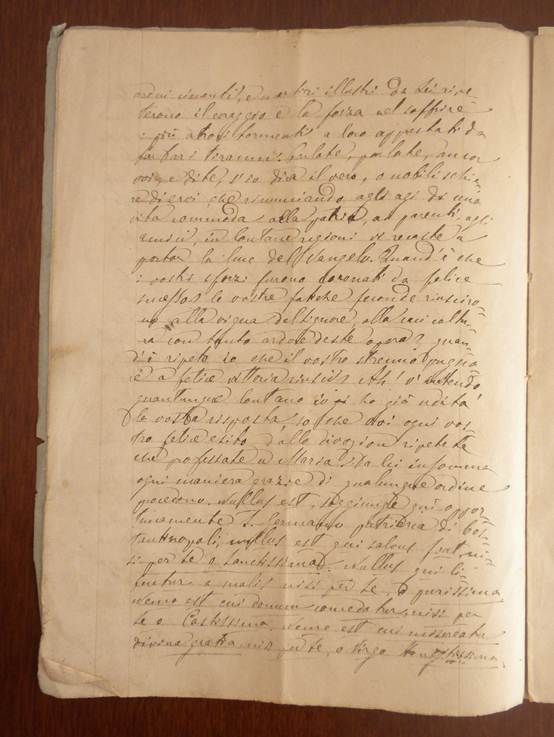 menti, e martiri illustri da Lei ripe
terono il coraggio e la forza nel soffrire
i più atroci tormenti a loro apprestati da
barbari tiranni. Parlate, parlate, ancor
voi, e dite, s'io dica il vero, o nobili schie
re di eroi che rinunciando agli agi di una
vita commoda, alla patria, ai parenti, agli
amici, in lontane regioni vi recaste a
portar la luce del Vangelo. Quand'è che
i vostri sforzi furono coronati da felice
successo? le vostre fatiche feconde riusciro
no alla vigna del Signore, alla cui coltu
ra con tanto ardore deste opera? quan
d'è ripeto io che il vostro strenuo pugnar
è a felice vittoria riuscito? Ah! v'intendo
quantunque lontano io vi ho già udita
la vostra risposta; so che voi ogni vos
tro felice esito dalla divozion ripetete
che professate a Maria. Da lei insomma
ogni maniera grazie di qualunque ordine
piovono. Nullus est, soggiunge qui oppor
tunamente S. Germano patriarca di Cos
tantinopoli, nullus est qui salvus fiat ni
si per te o Sanctissima. Nullus qui li
beretur a malis nisi per te, o purissima
Nemo est cui donum concedatur nisi per
te o Castissima. Nemo est cui misereatur
divina gratia nisi per te, o Virgo Honestissima.